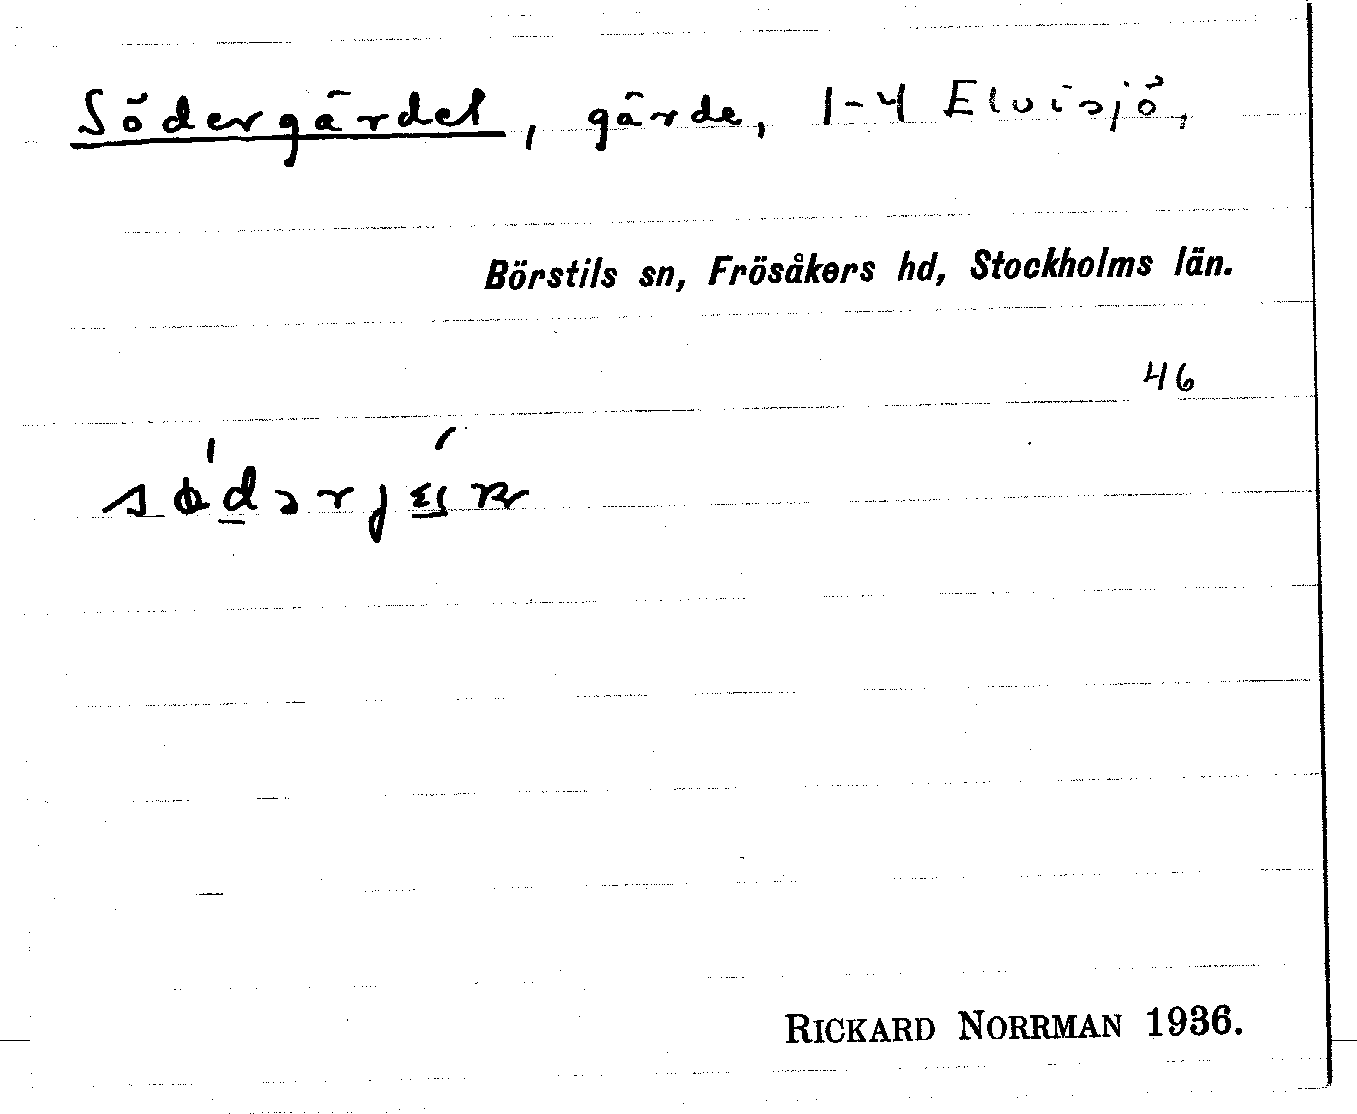 Södergärdet, gärde, 1-4 Elvisjö,
Börstils sn, Frösåkers hd, Stockholms län.
46
RICKARD NORRMAN 1936.